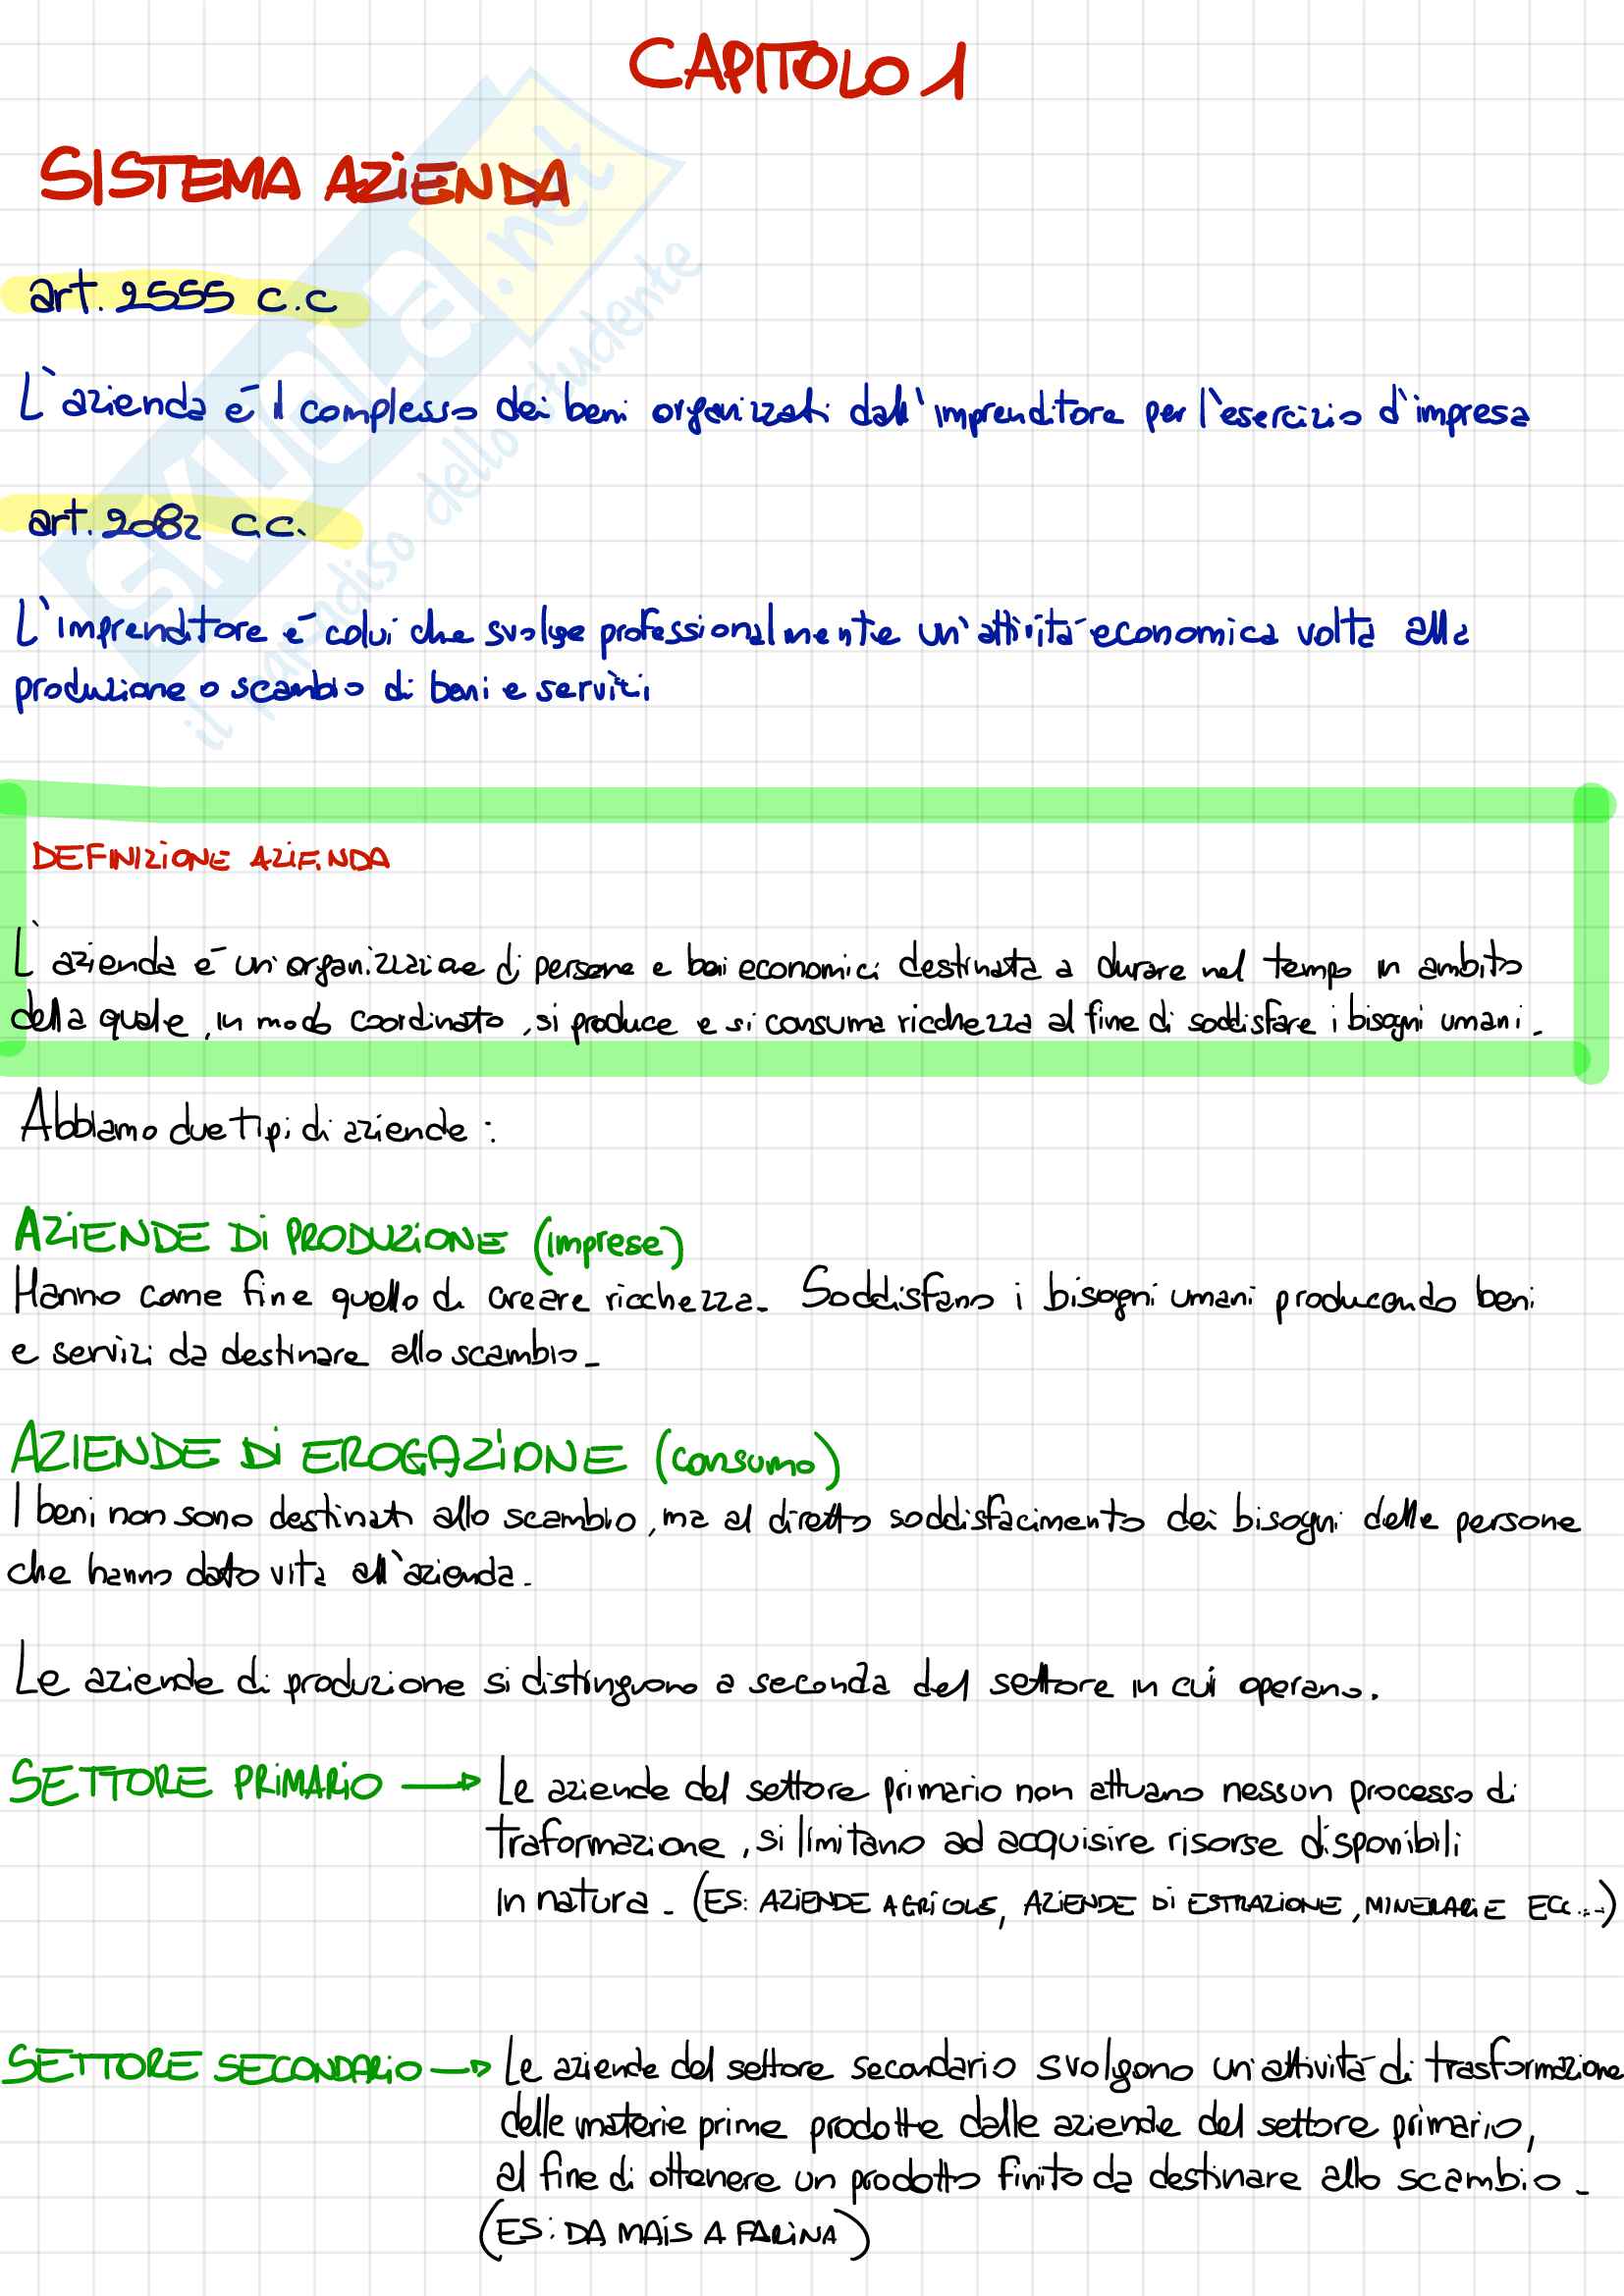 CAPITOLO 1
SISTEMA AZIENDA
art. 2555 c.c
L'azienda è il complesso dei beni organizzati dall'imprenditore per l'esercizio d'impresa
art. 2082 c.c.
L'imprenditore è colui che svolge professionalmente un'attività economica volta alla
produzione o scambio di beni e servizi
DEFINIZIONE AZIENDA
L'azienda è un'organizzazione di persone e beni economici destinata a durare nel tempo in ambito
della quale, in modo coordinato, si produce e si consuma ricchezza al fine di soddisfare i bisogni umani.
Abbiamo due tipi di aziende :
AZIENDE DI PRODUZIONE (imprese)
Hanno come fine quello di creare ricchezza. Soddisfano i bisogni umani producendo beni
e servizi da destinare allo scambio.
AZIENDE DI EROGAZIONE (consumo)
I beni non sono destinati allo scambio, ma al diretto soddisfacimento dei bisogni delle persone
che hanno dato vita all'azienda.
Le aziende di produzione si distinguono a seconda del settore in cui operano.
SETTORE PRIMARIO → Le aziende del settore primario non attuano nessun processo di
traformazione, si limitano ad acquisire risorse disponibili
in natura. (ES: AZIENDE AGRICOLE, AZIENDE DI ESTRAZIONE, MINERARIE ECC...)
SETTORE SECONDARIO → Le aziende del settore secondario svolgono un'attività di trasformazione
delle materie prime prodotte dalle aziende del settore primario,
al fine di ottenere un prodotto finito da destinare allo scambio.
(ES: DA MAIS A FARINA)
SKUOLA.net
il paradiso dello studente